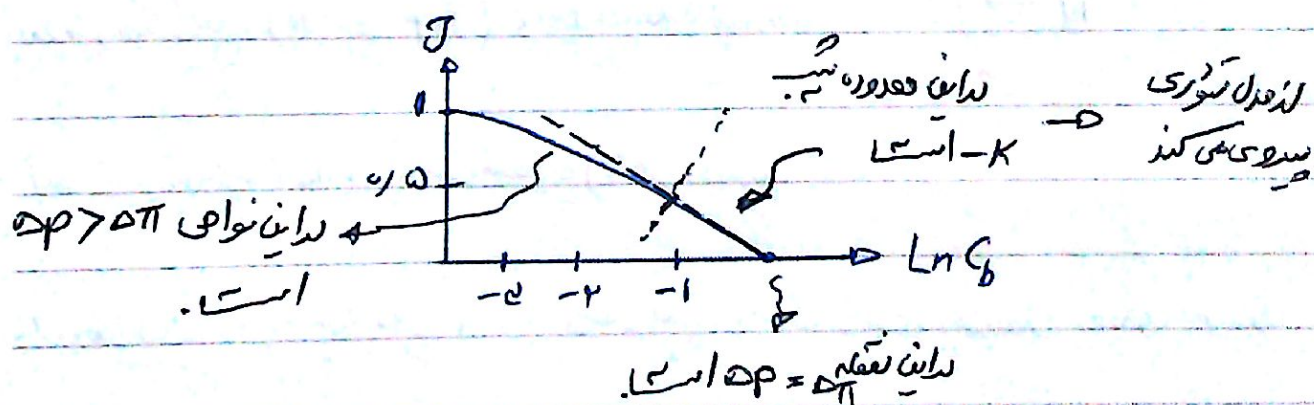 J
۱
۰/۵
در این محدوده شیب
-K است
از مدل تئوری
پیروی می کند
در این نواحی ΔP > Δπ
است.
-۳ -۲ -۱
Ln Cb
در این نقطه ΔP = Δπ است.